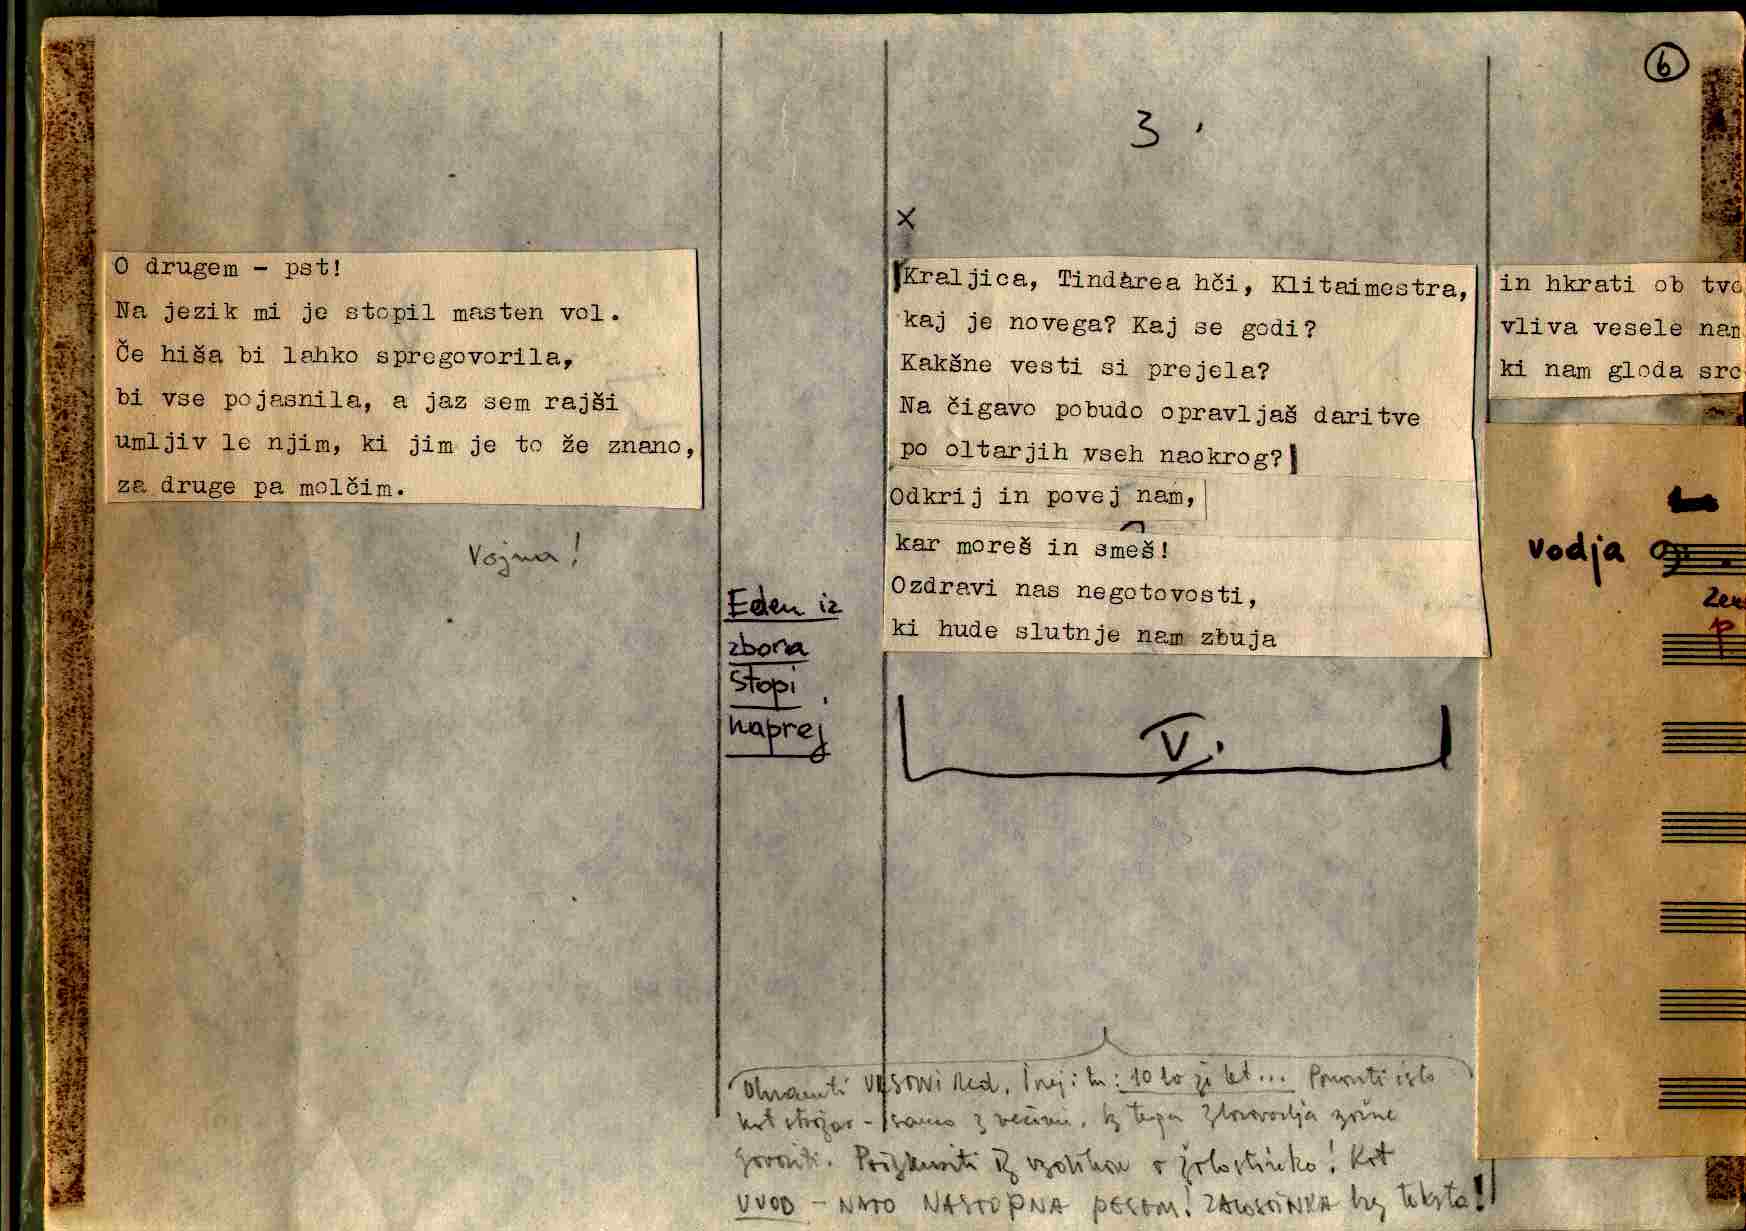 6
3.
x
O drugem - pst!
Na jezik mi je stopil masten vol.
Če hiša bi lahko spregovorila,
bi vse pojasnila, a jaz sem rajši
umljiv le njim, ki jim je to že znano,
za druge pa molčim.
Vojna!
Eden iz
zbora
stopi
naprej
Kraljica, Tindàrea hči, Klitaimestra,
kaj je novega? Kaj se godi?
Kakšne vesti si prejela?
Na čigavo pobudo opravljaš daritve
po oltarjih vseh naokrog?
Odkrij in povej nam,
kar moreš in smeš!
Ozdravi nas negotovosti,
ki hude slutnje nam zbuja
V.
in hkrati ob tvo
vliva vesele nam
ki nam gloda src
vodja
Zeu
p
Ohraniti red. : 10 let...
kot - samo z
govoriti. z žalostinko! Kot
UVOD - NATO NASTOPNA PESEM! ŽALOSTINKA brez teksta!